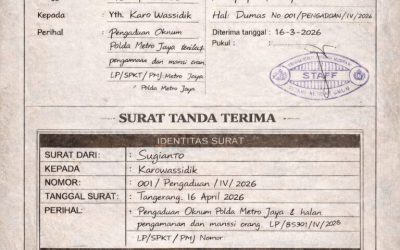 Kepada : Yth. Karo Wassidik
Hal: Dumas No 001/PENGADUAN/IV/2026
Perihal : Pengaduan Oknum
Polda Metro Jaya
Diterima tanggal : 16-3-2026
pengamanan dan
Pukul :
LP/SPKT/PMJ Metro Jaya
Polda Metro Jaya
STAFF
SURAT TANDA TERIMA
IDENTITAS SURAT
SURAT DARI: : Sugianto
KEPADA : Karowassidik
NOMOR: : 001 / Pengaduan / IV / 2026
TANGGAL SURAT: : Tangerang, 16 April 2026
PERIHAL: : Pengaduan Oknum Polda Metro Jaya & halan
pengamanan dan manssi orang. LP/BS301/IV/2025
LP/SPKT / PMJ Nomor